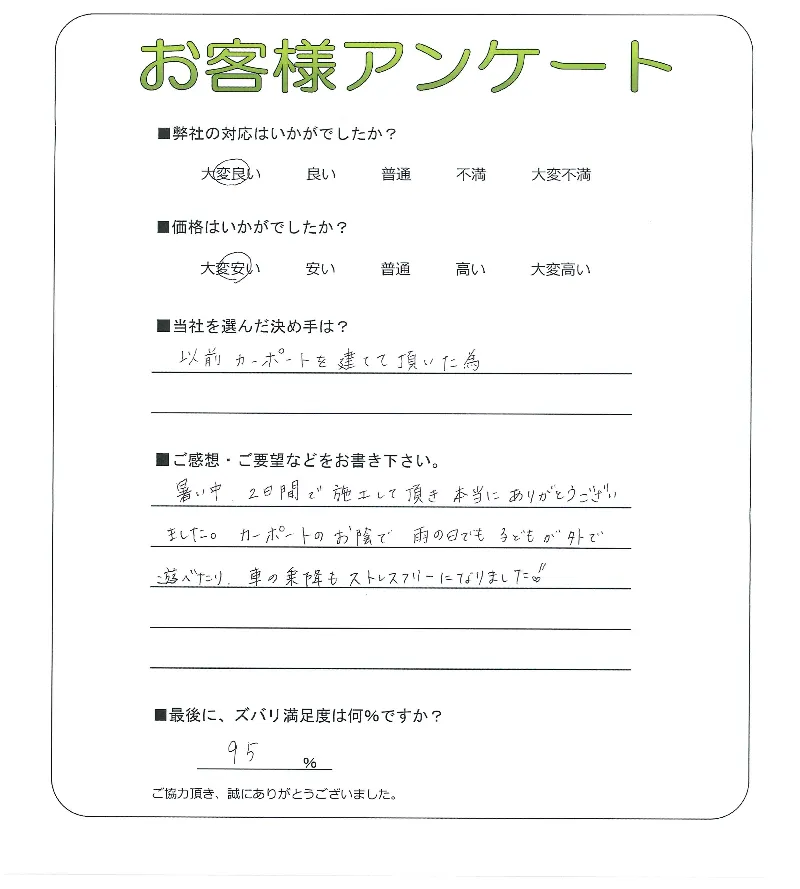 お客様アンケート
■弊社の対応はいかがでしたか？
大変良い 良い 普通 不満 大変不満
■価格はいかがでしたか？
大変安い 安い 普通 高い 大変高い
■当社を選んだ決め手は？
以前カーポートを建てて頂いた為
■ご感想・ご要望などをお書き下さい。
暑い中、2日間で施工して頂き本当にありがとうござい
ました。カーポートのお陰で 雨の日でも子どもが外で
遊べたり、車の乗降もストレスフリーになりました♡!!
■最後に、ズバリ満足度は何％ですか？
95 ％
ご協力頂き、誠にありがとうございました。